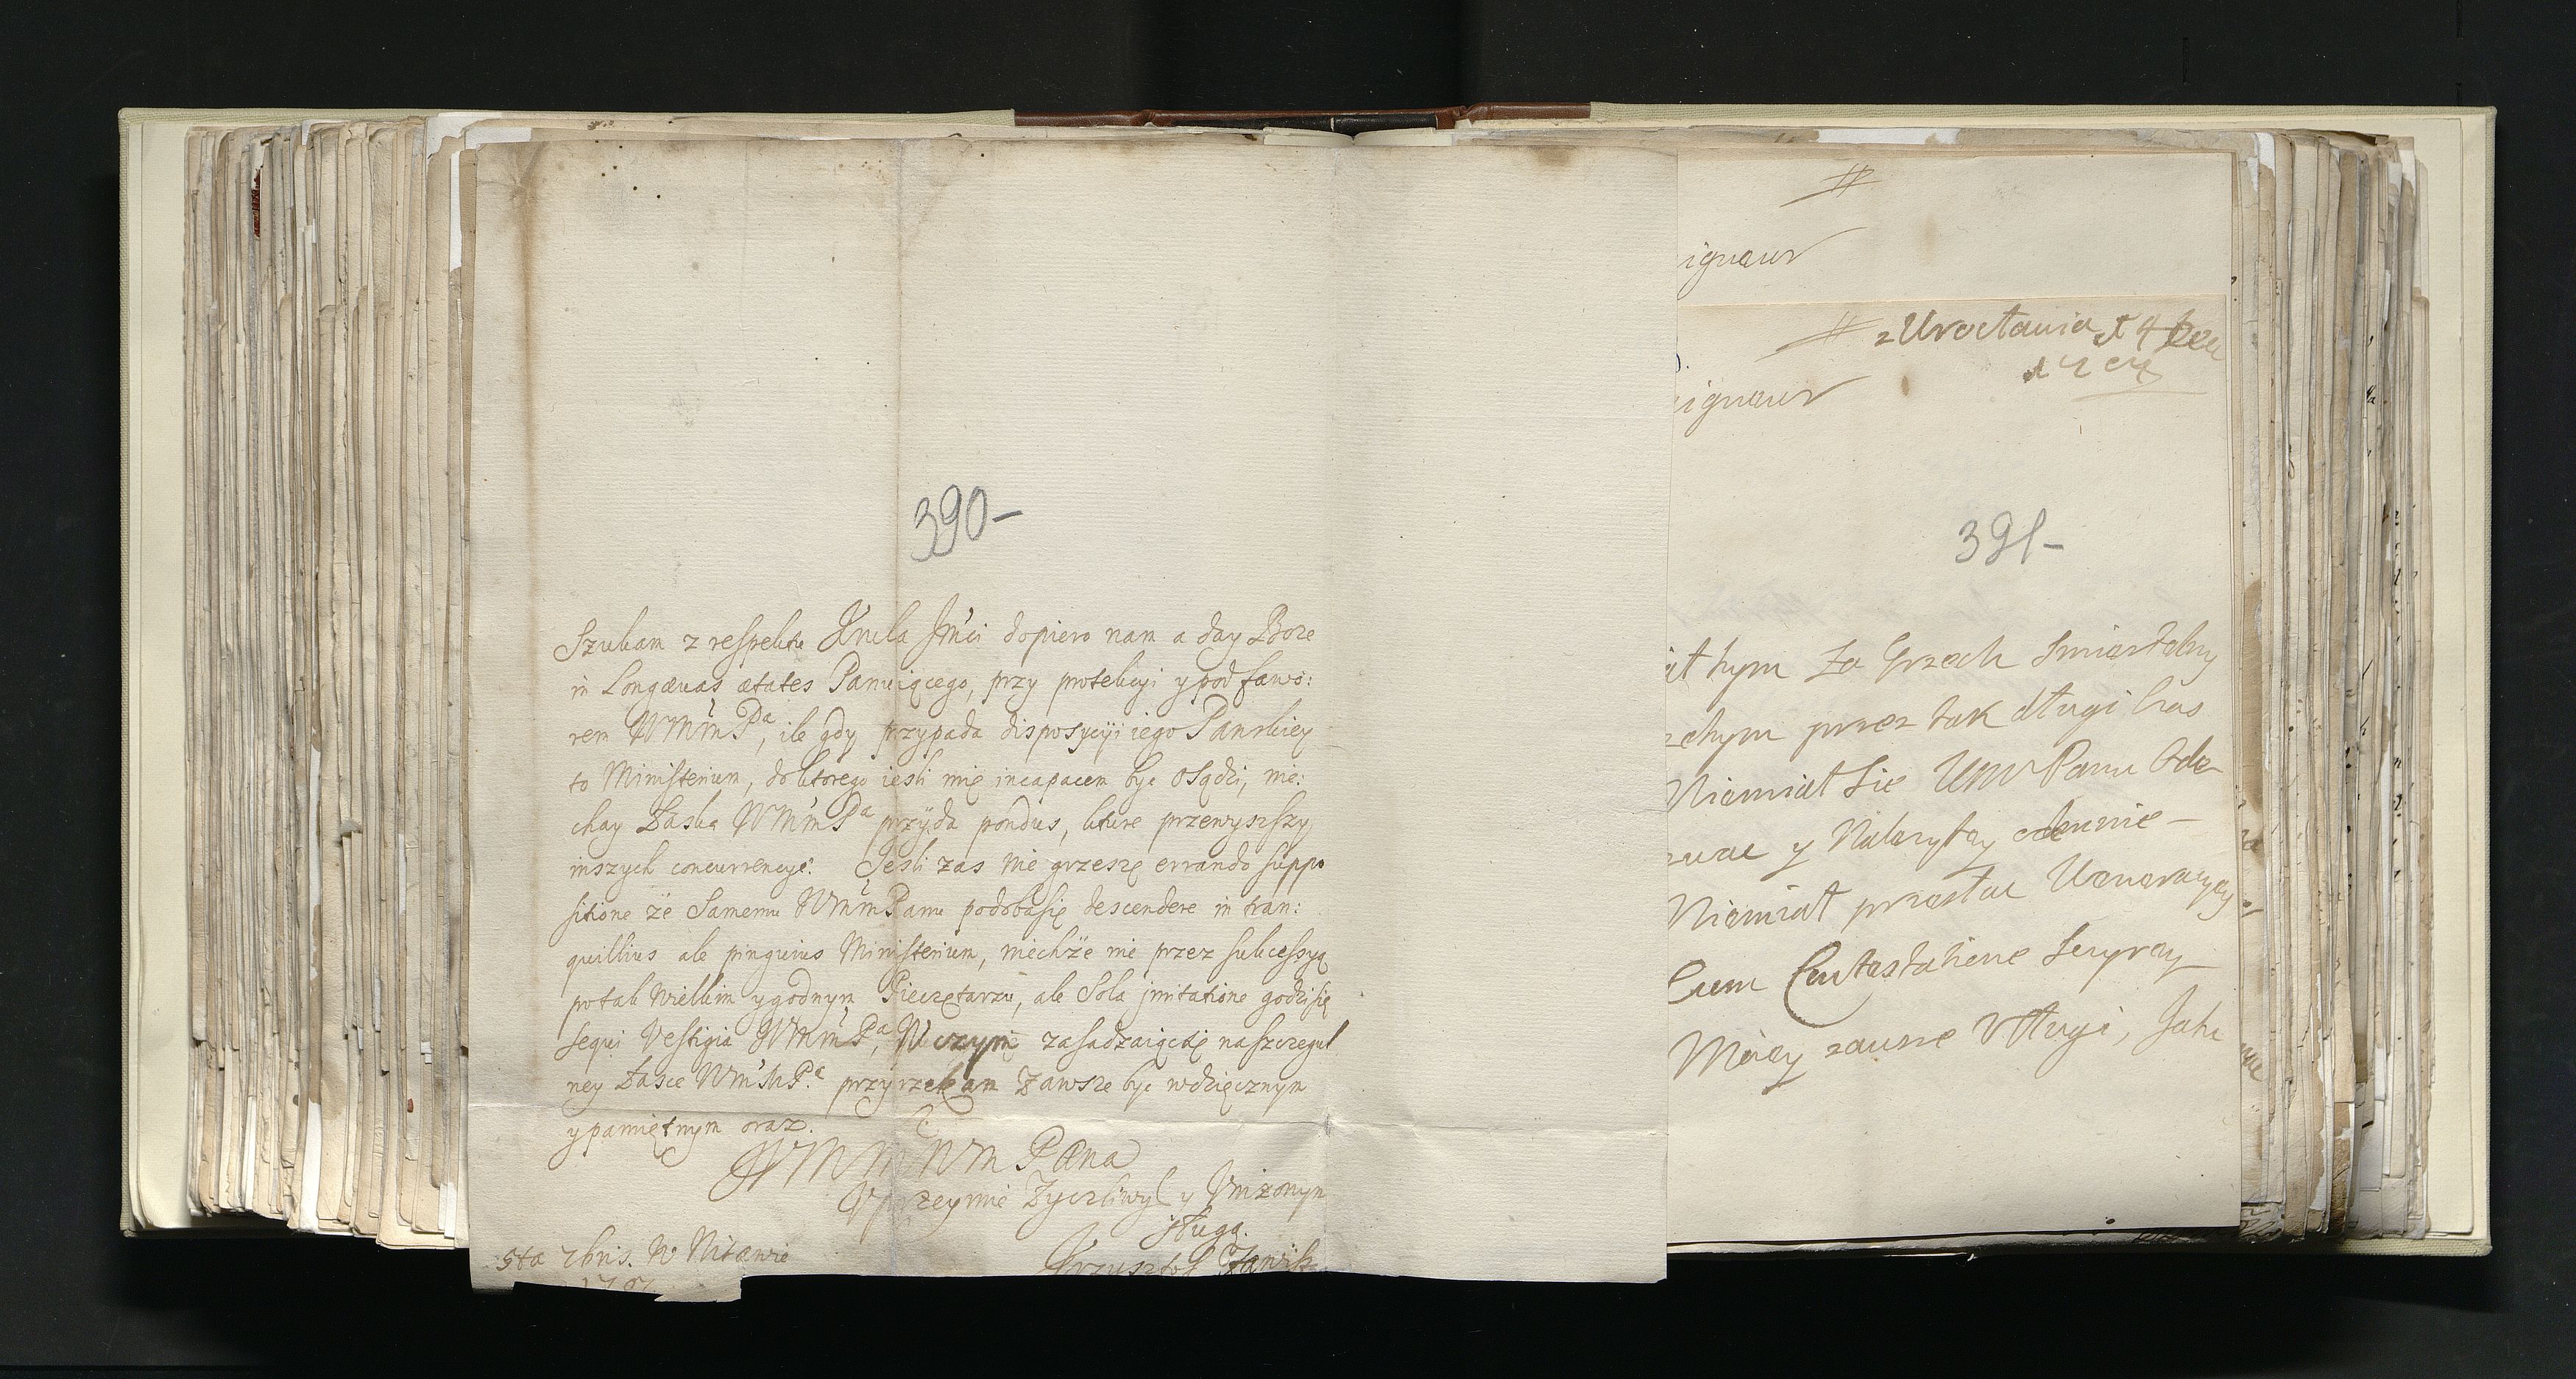 390-
Szukam z respektu Krula Jmci dopiero nam a day Boze
in Longævas ætates Panuiącego, przy protekcyi y pod fawo:
rem WMmPa, ile gdy przypada disposycÿi iego Panskiey
to Ministerium, do ktorego iesli mię incapacem byc osądzi, nie:
chay Łaska WMmPa przÿda pondus, kture przewyszszy
inszych concurrencye: Jesli zas nie grzeszę errando suppo
sitione że Samemu WMmPanu podobasię descendere in tran:
quillius ale pinguius Ministerium, niechże nie przez sukcessyą
po tak wielkim y godnym Pieczętarzu, ale Sola jmitatione godzi się
sequi Vestigia WMmPa, W czym zasadzaiąc się na szczegul
ney Łasce WmMPa przyrzekam Zawsze byc wdzięcznym
y pamiętnym oraz.
WMM WM Pana
Vprzeymie Zyczliwył y Vniżonym
sługą.
Krzysztof Zawisz
5ta 7bris. W Mitawie
#
ignaur
# z Uroctawia d 4
ignaur
391-
at hym za Grzech Smiertelny
zchym przez tak długi Czas
Niemiał Sie UMPanu Ode
zwac y Nalezytey odemnie-
Niemiał przestac Veneracyey
Cum Contestatione Szyrey
Mòiey zausze Vsługi, Jaka